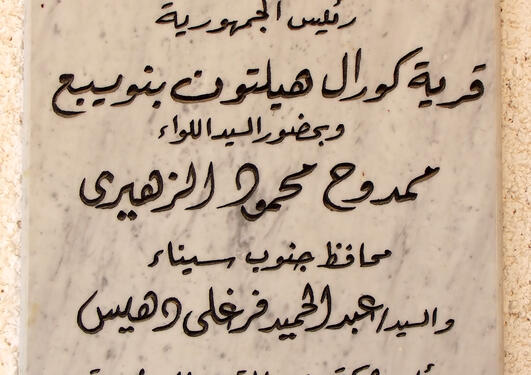 رئيس الجمهورية
قرية كورال هيلتون بنويبع
وبحضور السيد اللواء
ممدوح محمود الزهيرى
محافظ جنوب سيناء
والسيد/ عبد الحميد فرغلى دهيس